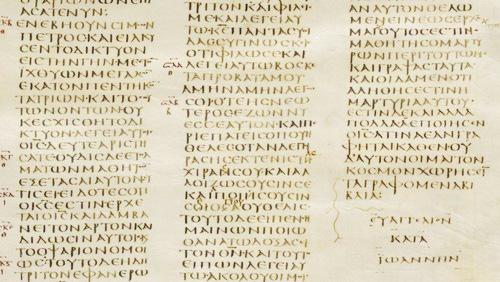 ΑϹΑΤΕΝΥΝ
ΕΝΕΒΗΟΥΝϹΙΜΩ
ΠΕΤΡΟϹΚΑΙΕΙΛΚΥ
ϹΕΝΤΟΔΙΚΤΥΟΝ
ΕΙϹΤΗΝΓΗΝΜΕϹΤΟ
ΙΧΘΥΩΝΜΕΓΑΛΩ
ΕΚΑΤΟΝΠΕΝΤΗΚΟ
ΤΑΤΡΙΩΝΚΑΙΤΟϹΟΥ
ΤΩΝΟΝΤΩΝΟΥ
ΚΕϹΧΙϹΘΗΤΟΔΙ
ΚΤΥΟΝΛΕΓΕΙΑΥΤΟΙϹ
ΟΙϹΔΕΥΤΕΑΡΙϹΤΗ
ϹΑΤΕΟΥΔΙϹΔΕΕΤΟΛ
ΜΑΤΩΝΜΑΘΗΤΩ
ΕΞΕΤΑϹΑΙΑΥΤΟΝ
ΤΙϹΕΙΕΙΔΟΤΕϹΟΤΙ
ΟΚϹΕϹΤΙΝΕΡΧΕ
ΤΑΙΟΙϹΚΑΙΛΑΜΒΑ
ΝΕΙΤΟΝΑΡΤΟΝΚΑΙ
ΔΙΔΩϹΙΝΑΥΤΟΙϹ
ΤΟΟΨΑΡΙΟΝΟΜΟΙ
ΩϹΤΟΥΤΟΔΕΗΔΗ
ΤΡΙΤΟΝΕΦΑΝΕΡΩ
ΤΡΙΤΟΝΚΑΙΦΙΛΙϹ
ΜΕΚΑΙΛΕΓΕΙΑΥ
ΤΩΚΕΠΑΝΤΑϹΥ
ΟΤΙΦΙΛΩϹΕΚΑΙ
ΛΕΓΕΙΑΥΤΩΒΟϹΚΕ
ΤΑΠΡΟΒΑΤΑΜΟΥ
ΑΜΗΝΑΜΗΝΛΕΓΩ
ϹΟΙΟΤΕΗϹΝΕΩ
ΤΕΡΟϹΕΖΩΝΝΥ
ΕϹϹΕΑΥΤΟΝΚΑΙΠΕ
ΡΙΕΠΑΤΕΙϹΟΠΟΥ
ΗΘΕΛΕϹΟΤΑΝΔΕΓΗ
ΡΑϹΗϹΕΚΤΕΝΙϹΤΗ
ΧΙΡΑϹΟΥΚΑΙΑΛ
ΛΟΙΖΩϹΟΥϹΙΝϹΕ
ΚΑΙΠΟΙΗϹΟΥϹΙΝ
ϹΟΙΟϹΑΟΥΘΕΛΕΙϹ
ΤΟΥΤΟΔΕΕΙΠΕΝϹΗ
ΜΑΙΝΩΝΠΟΙΩ
ΘΑΝΑΤΩΔΟΞΑϹΕΙ
ΤΟΝΘΝΚΑΙΤΟΥΤΟ
ΕΙΠΩΝΛΕΓΕΙΑΥ
ΤΩΑΚΟΛΟΥΘΙΜΟΙ
ΑΝΑΥΤΟΝΘΕΛΩ
ΜΕΝΕΙΝΕΩϹΕΡΧΟ
ΜΑΙΟΥΤΟϹΕϹΤΙΝΟ
ΜΑΘΗΤΗϹΟΜΑΡΤΥ
ΡΩΝΠΕΡΙΤΟΥΤΩΝ
ΚΑΙΓΡΑΨΑϹΤΑΥΤΑ
ΚΑΙΟΙΔΑΜΕΝΟΤΙ
ΑΛΗΘΗϹΕϹΤΙΝΗ
ΜΑΡΤΥΡΙΑΑΥΤΟΥ
ΕϹΤΙΝΔΕΚΑΙΑΛΛΑ
ΠΟΛΛΑΑΕΠΟΙΗϹΕΝ
ΟΙϹΑΤΙΝΑΕΑΝΓΡΑ
ΦΗΤΑΙΚΑΘΕΝΟΥ
ΔΑΥΤΟΝΟΙΜΑΙΤΟΝ
ΚΟϹΜΟΝΧΩΡΗϹΕΙ
ΤΑΓΡΑΦΟΜΕΝΑΒΙ
ΒΛΙΑ:
ΕΥΑΓΓΕΛΙΟΝ
ΚΑΤΑ
ΙΩΑΝΝΗΝ